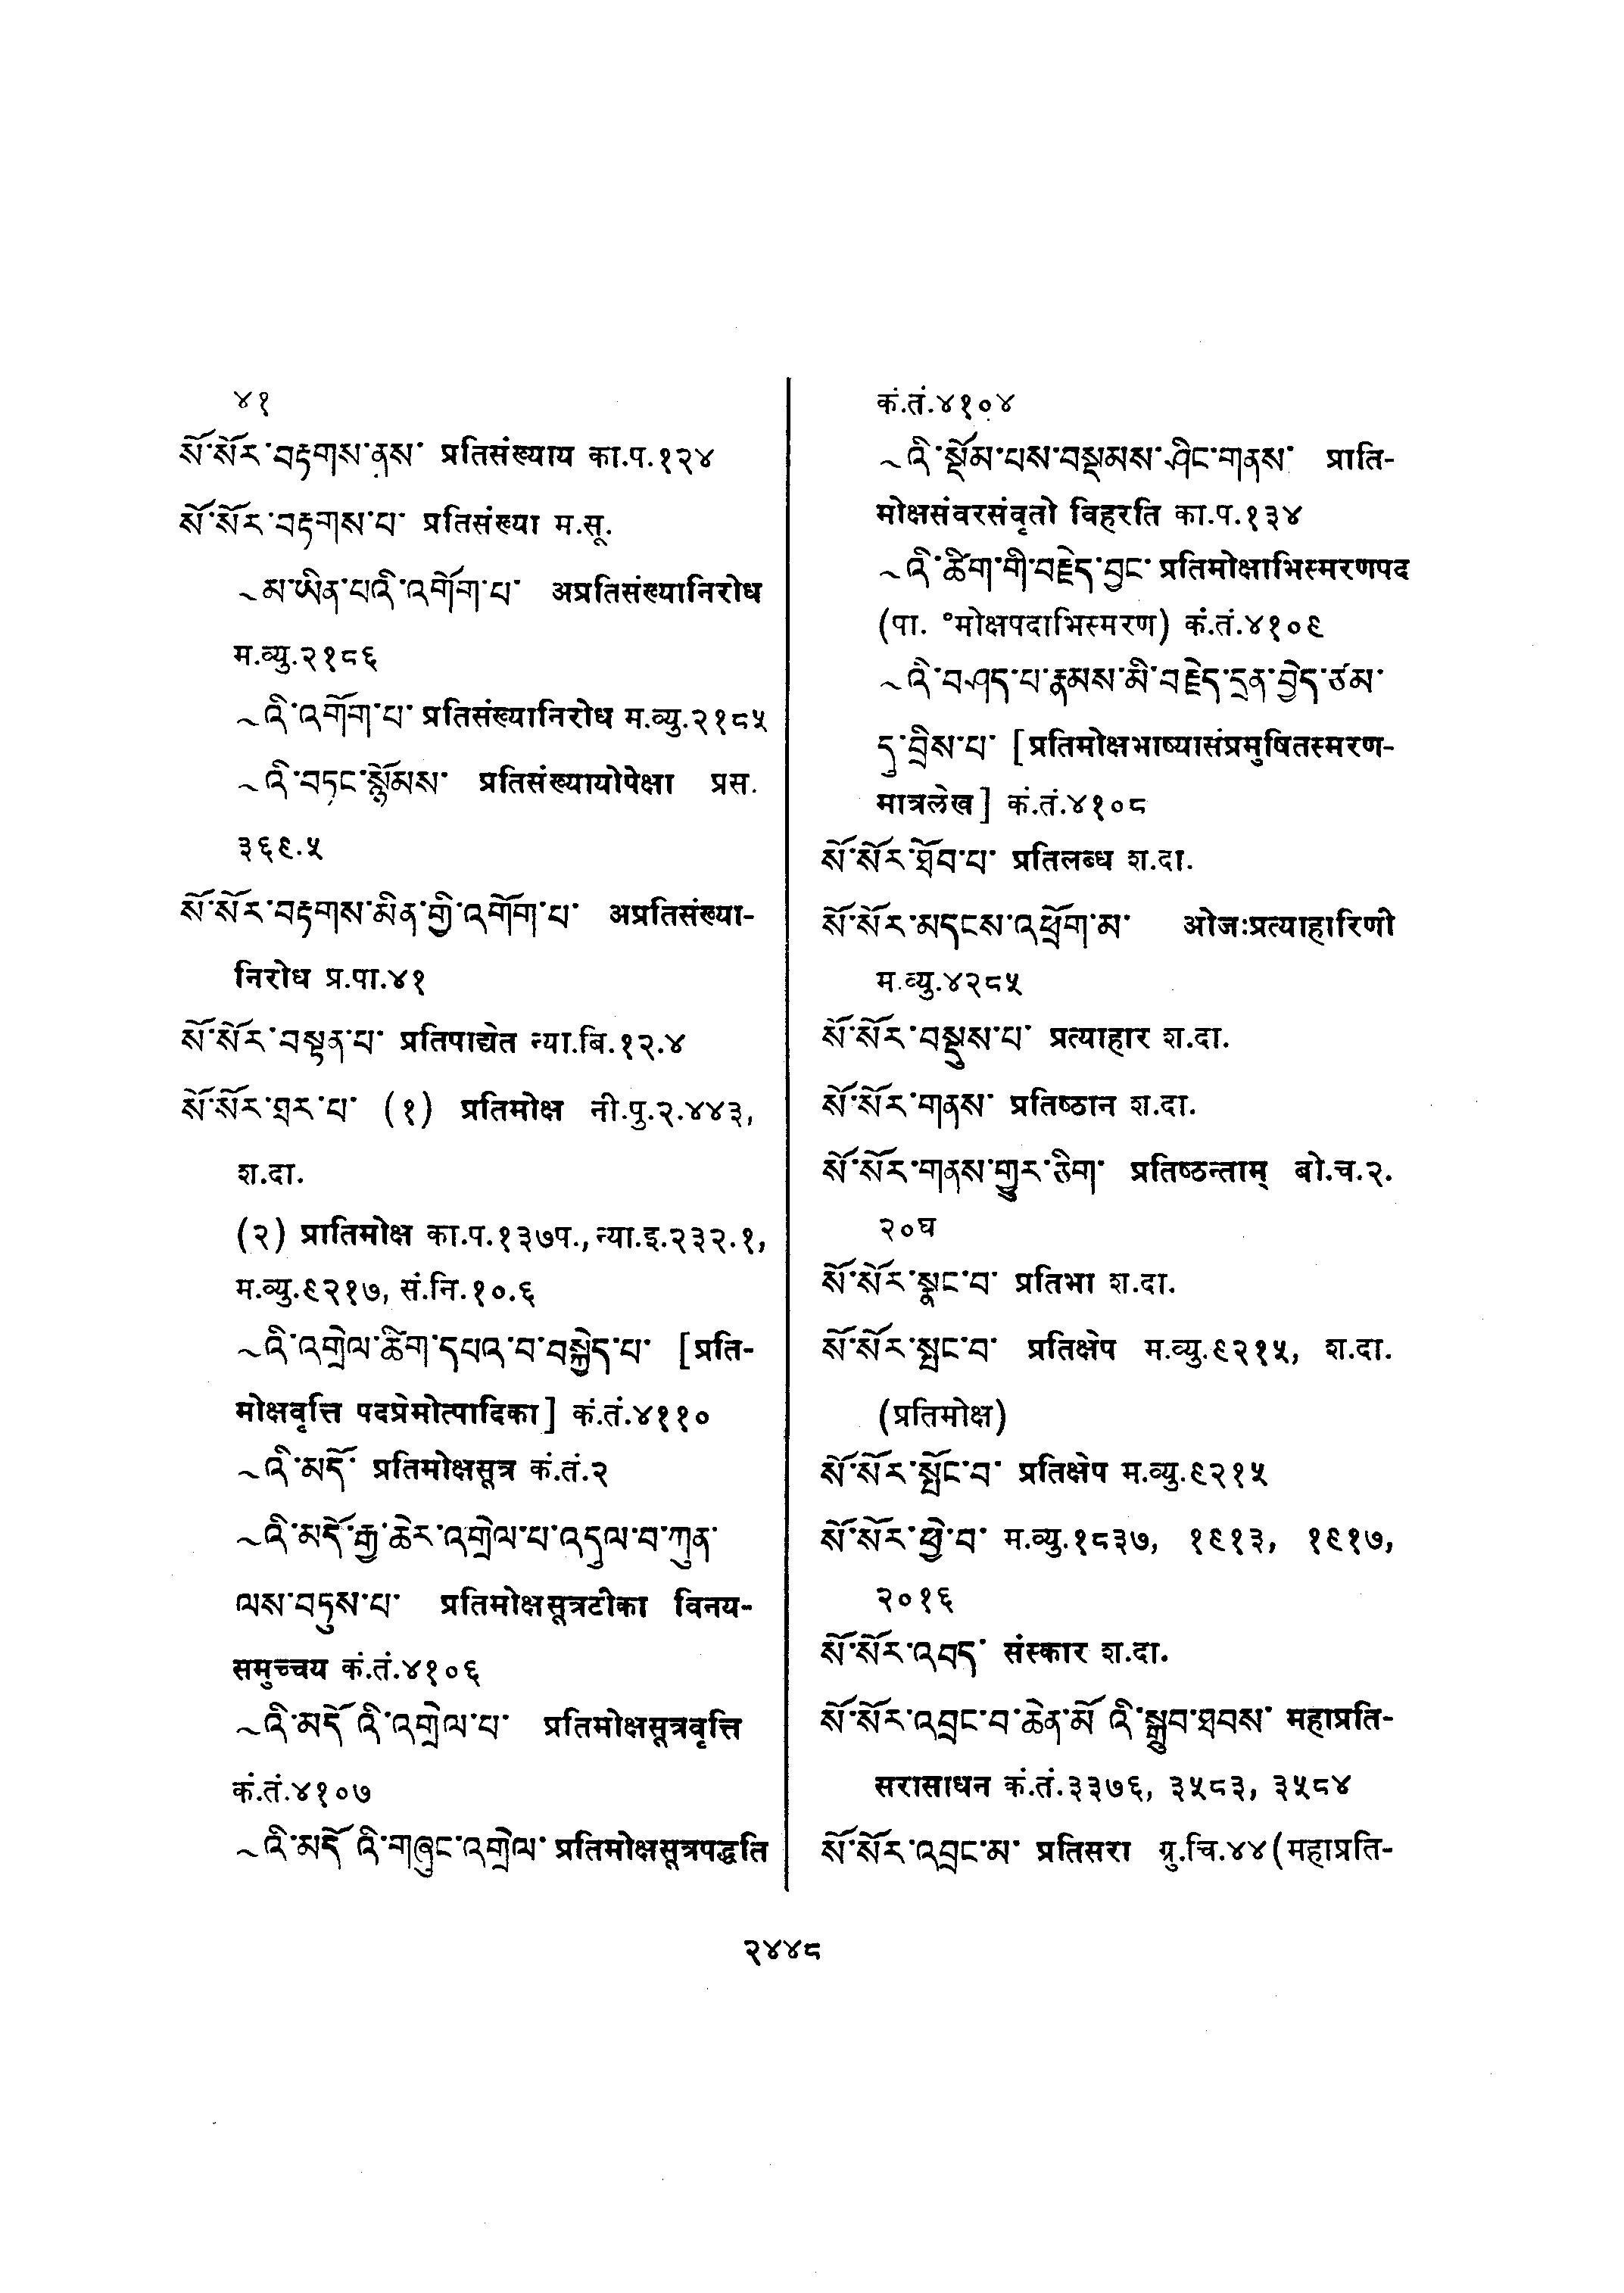 ४१
སོ་སོར་བརྟགས་ནས་ प्रतिसंख्याय का.प.१२४
སོ་སོར་བརྟགས་པ་ प्रतिसंख्या म.सू.
~མ་ཡིན་པའི་འགོག་པ་ अप्रतिसंख्यानिरोध
म.व्यु.२१८६
~འི་འགོག་པ་ प्रतिसंख्यानिरोध म.व्यु.२१८५
~འི་བཏང་སྙོམས་ प्रतिसंख्यायोपेक्षा प्रस.
३६९.५
སོ་སོར་བརྟགས་མིན་གྱི་འགོག་པ་ अप्रतिसंख्या-
निरोध प्र.पा.४१
སོ་སོར་བསྟན་པ་ प्रतिपाद्येत न्या.बि.१२.४
སོ་སོར་ཐར་པ་ (१) प्रतिमोक्ष नी.पु.२.४४३,
श.दा.
(२) प्रातिमोक्ष का.प.१३७प., न्या.इ.२३२.१,
म.व्यु.९२१७, सं.नि.१०.६
~འི་འགྲེལ་ཚིག་དཔའ་བ་བསྐྱེད་པ་ [प्रति-
मोक्षवृत्ति पदप्रेमोत्पादिका] कं.तं.४११०
~འི་མདོ་ प्रतिमोक्षसूत्र कं.तं.२
~འི་མདོ་རྒྱ་ཆེར་འགྲེལ་པ་འདུལ་བ་ཀུན་
ལས་བཏུས་པ་ प्रतिमोक्षसूत्रटीका विनय-
समुच्चय कं.तं.४१०६
~འི་མདོ་འི་འགྲེལ་པ་ प्रतिमोक्षसूत्रवृत्ति
कं.तं.४१०७
~འི་མདོ་འི་གཞུང་འགྲེལ་ प्रतिमोक्षसूत्रपद्धति
कं.तं.४१०४
~འི་སྡོམ་པས་བསྡམས་ཤིང་གནས་ प्राति-
मोक्षसंवरसंवृतो विहरति का.प.१३४
~འི་ཚིག་གི་བརྗེད་བྱང་ प्रतिमोक्षाभिस्मरणपद
(पा. °मोक्षपदाभिस्मरण) कं.तं.४१०९
~འི་བཤད་པ་རྣམས་མི་བརྗེད་དྲན་བྱེད་ཙམ་
དུ་བྲིས་པ་ [प्रतिमोक्षभाष्यासंप्रमुषितस्मरण-
मात्रलेख] कं.तं.४१०८
སོ་སོར་ཐོབ་པ་ प्रतिलब्ध श.दा.
སོ་སོར་མདངས་འཕྲོག་མ་ ओजःप्रत्याहारिणी
म.व्यु.४२८५
སོ་སོར་བསྡུས་པ་ प्रत्याहार श.दा.
སོ་སོར་གནས་ प्रतिष्ठान श.दा.
སོ་སོར་གནས་གྱུར་ཅིག་ प्रतिष्ठन्ताम् बो.च.२.
२०घ
སོ་སོར་སྣང་བ་ प्रतिभा श.दा.
སོ་སོར་སྤང་བ་ प्रतिक्षेप म.व्यु.९२१५, श.दा.
(प्रतिमोक्ष)
སོ་སོར་སྤོང་བ་ प्रतिक्षेप म.व्यु.९२१५
སོ་སོར་ཕྱེ་བ་ म.व्यु.१८३७, १९१३, १९१७,
२०१६
སོ་སོར་འབད་ संस्कार श.दा.
སོ་སོར་འབྲང་བ་ཆེན་མོ་འི་སྒྲུབ་ཐབས་ महाप्रति-
सरासाधन कं.तं.३३७६, ३५८३, ३५८४
སོ་སོར་འབྲང་མ་ प्रतिसरा ग्रु.चि.४४ (महाप्रति-
२४४८